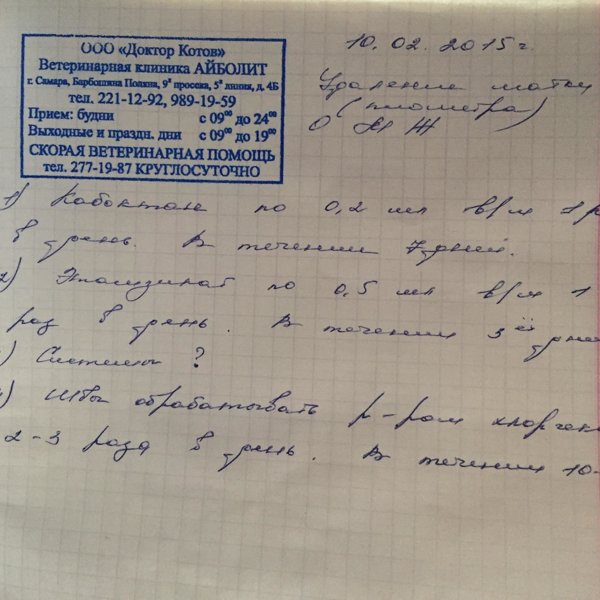 ООО «Доктор Котов»
Ветеринарная клиника АЙБОЛИТ
г. Самара, Барбошина Поляна, 9ª просека, 5ª линия, д. 4Б
тел. 221-12-92, 989-19-59
Прием: будни с 09⁰⁰ до 24⁰⁰
Выходные и праздн. дни с 09⁰⁰ до 19⁰⁰
СКОРАЯ ВЕТЕРИНАРНАЯ ПОМОЩЬ
тел. 277-19-87 КРУГЛОСУТОЧНО
10.02.2015 г.
Удаление матки
(пиометра)
О И Ж
1) Кобактан по 0,2 мл в/м 1 р
в день. В течении 7 дней.
2) Этамзилат по 0,5 мл в/м 1
раз в день. В течении 3ёх дней
) Системы ?
) Швы обрабатывать р-ром хлоргек
2-3 раза в день. В течении 10-